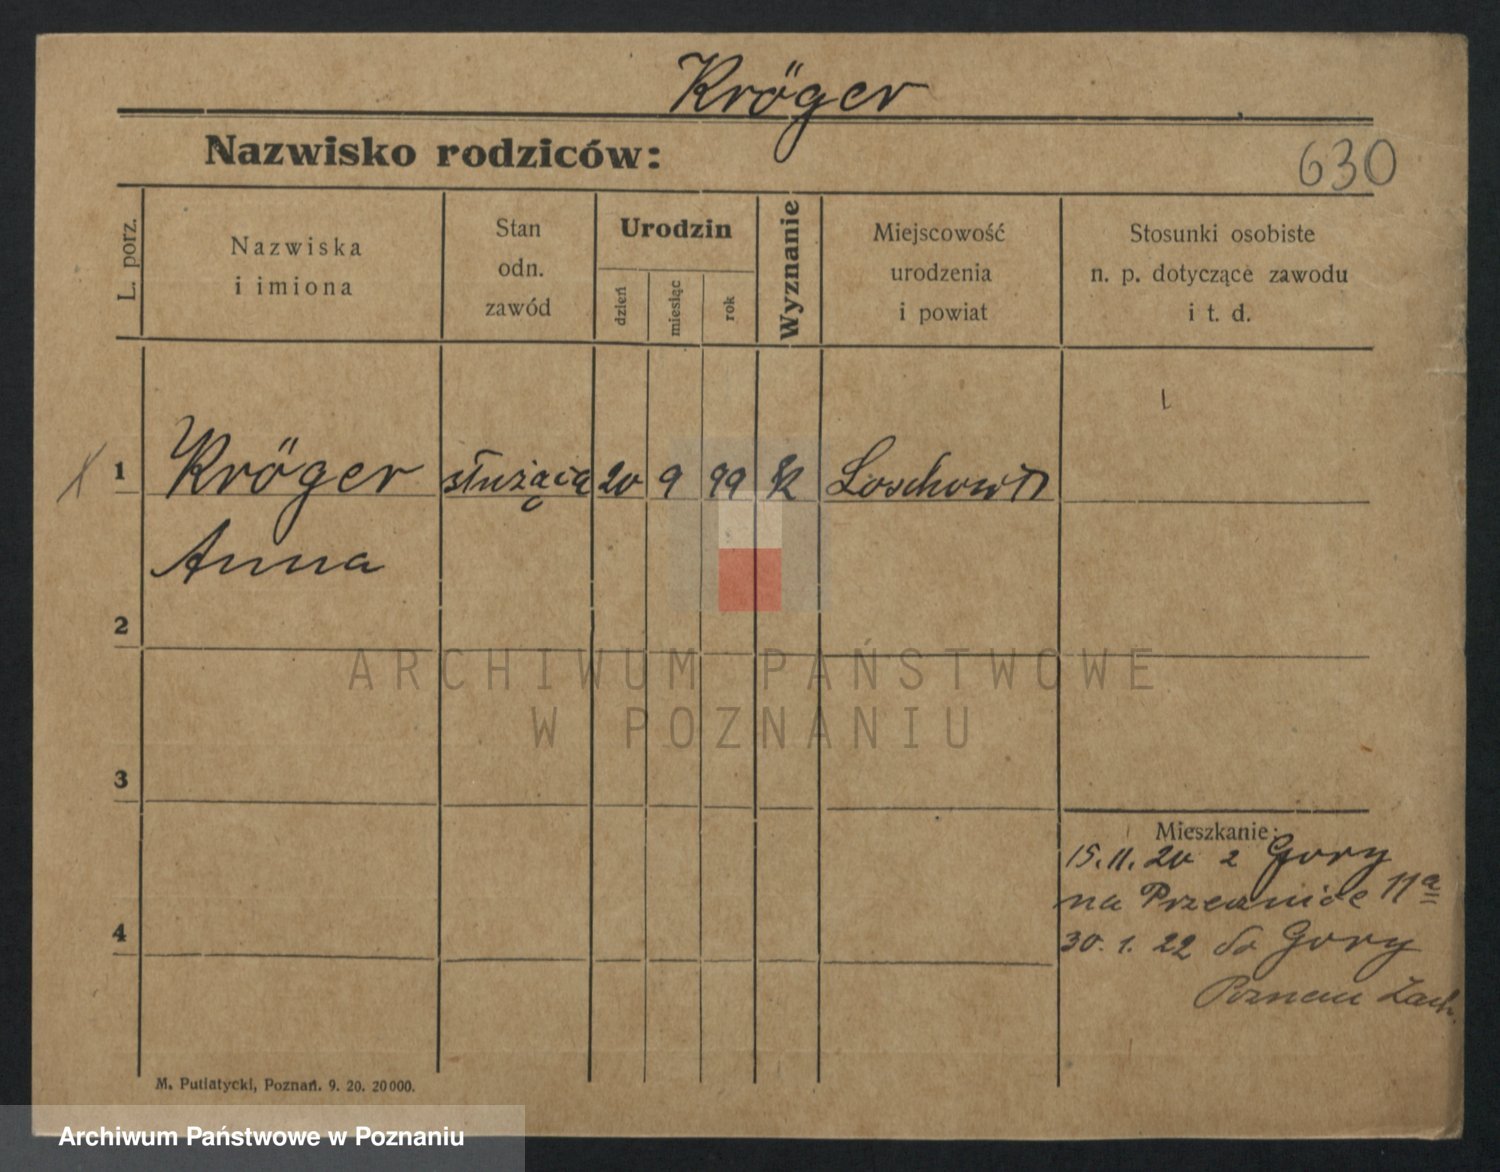 Kröger
Nazwisko rodziców:
630
L. porz.
Nazwiska
i imiona
Stan
odn.
zawód
Urodzin
dzień
miesiąc
rok
Wyznanie
Miejscowość
urodzenia
i powiat
Stosunki osobiste
n. p. dotyczące zawodu
i t. d.
1 Kröger służąca 20 9 99 k Loschowitz
Anna
2
3
4
Mieszkanie:
15.11.20 z Gory
na Przecznice 11a
30.1.22 do Gory
Poznań Zach.
M. Putiatycki, Poznań. 9. 20. 20000.
ARCHIWUM PAŃSTWOWE
W POZNANIU
Archiwum Państwowe w Poznaniu